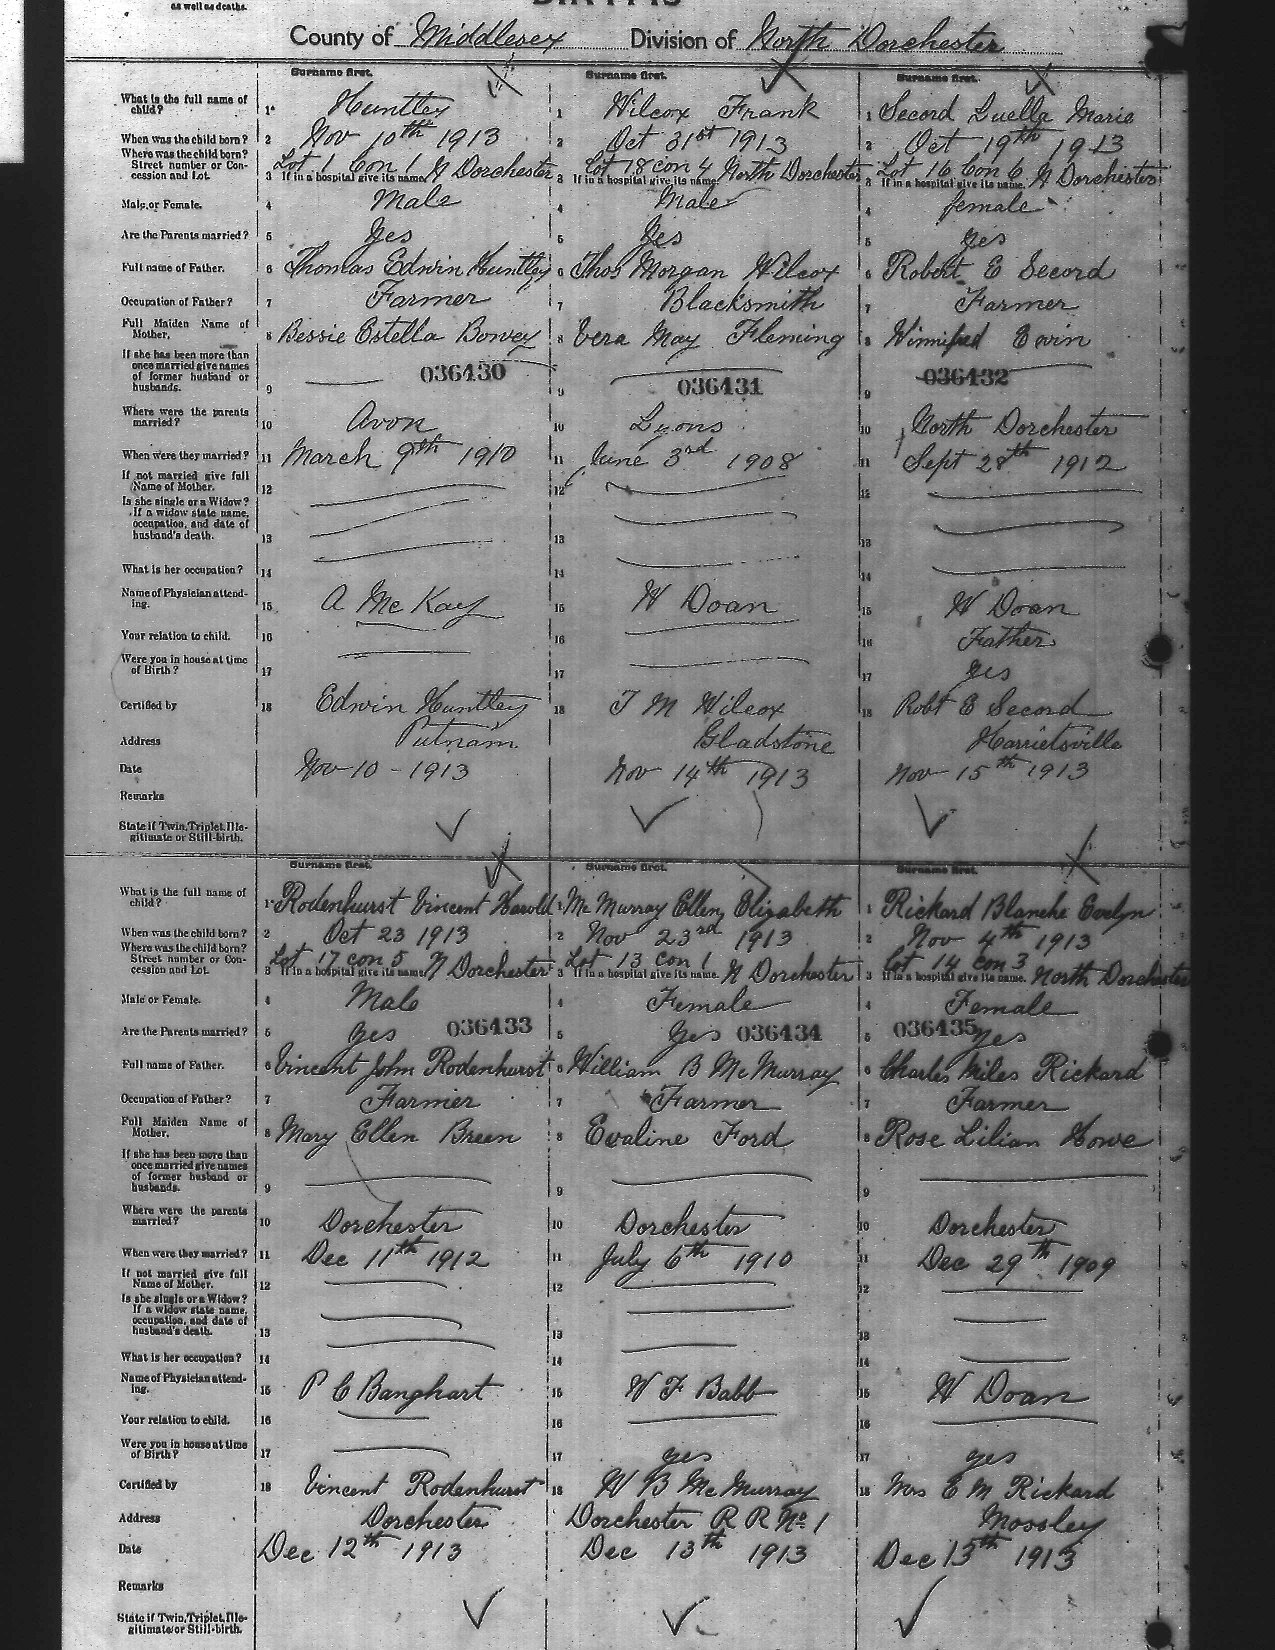 as well as deaths.
BIRTHS
County of Middlesex Division of North Dorchester
Surname first. Surname first. Surname first.
What is the full name of child? 1 Huntley 1 Wilcox Frank 1 Secord Luella Marie
When was the child born? 2 Nov 10th 1913 2 Oct 31st 1913 2 Oct 19th 1913
Where was the child born? Street number or Concession and Lot. 3 Lot 1 Con 1 N Dorchester 3 Lot 18 con 4 North Dorchester 3 Lot 16 Con 6 N Dorchester
If in a hospital give its name. If in a hospital give its name. If in a hospital give its name.
Male or Female. 4 Male 4 Male 4 female
Are the Parents married? 5 Yes 5 Yes 5 yes
Full name of Father. 6 Thomas Edwin Huntley 6 Thos Morgan Wilcox 6 Robert E Secord
Occupation of Father? 7 Farmer 7 Blacksmith 7 Farmer
Full Maiden Name of Mother. 8 Bessie Estella Bowey 8 Vera May Fleming 8 Winnifred Erwin
If she has been more than once married give names of former husband or husbands. 9 036430 9 036431 9 036432
Where were the parents married? 10 Avon 10 Lyons 10 North Dorchester
When were they married? 11 March 9th 1910 11 June 3rd 1908 11 Sept 28th 1912
If not married give full Name of Mother. 12 12 12
Is she single or a Widow? If a widow state name, occupation, and date of husband's death. 13 13 13
What is her occupation? 14 14 14
Name of Physician attending. 15 A McKay 15 W Doan 15 W Doan
Your relation to child. 16 16 16 Father
Were you in house at time of Birth? 17 17 17 yes
Certified by 18 Edwin Huntley 18 T M Wilcox 18 Robt E Secord
Address Putnam Gladstone Harrietsville
Date Nov 10 - 1913 Nov 14th 1913 Nov 15th 1913
Remarks
State if Twin, Triplet, Illegitimate or Still-birth.
Surname first. Surname first. Surname first.
What is the full name of child? 1 Rodenhurst Vincent Harold 1 McMurray Ellen Elizabeth 1 Rickard Blanche Evelyn
When was the child born? 2 Oct 23 1913 2 Nov 23rd 1913 2 Nov 4th 1913
Where was the child born? Street number or Concession and Lot. 3 Lot 17 con 5 N Dorchester 3 Lot 13 con 1 N Dorchester 3 Lot 14 con 3 North Dorchester
If in a hospital give its name. If in a hospital give its name. If in a hospital give its name.
Male or Female. 4 Male 4 Female 4 Female
Are the Parents married? 5 yes 036433 5 Yes 036434 5 036435 yes
Full name of Father. 6 Vincent John Rodenhurst 6 William B McMurray 6 Charles Miles Rickard
Occupation of Father? 7 Farmer 7 Farmer 7 Farmer
Full Maiden Name of Mother. 8 Mary Ellen Breen 8 Evaline Ford 8 Rose Lilian Howe
If she has been more than once married give names of former husband or husbands. 9 9 9
Where were the parents married? 10 Dorchester 10 Dorchester 10 Dorchester
When were they married? 11 Dec 11th 1912 11 July 6th 1910 11 Dec 29th 1909
If not married give full Name of Mother. 12 12 12
Is she single or a Widow? If a widow state name, occupation, and date of husband's death. 13 13 13
What is her occupation? 14 14 14
Name of Physician attending. 15 P C Banghart 15 W F Babb 15 W Doan
Your relation to child. 16 16 16
Were you in house at time of Birth? 17 17 yes 17 yes
Certified by 18 Vincent Rodenhurst 18 W B McMurray 18 Mrs C M Rickard
Address Dorchester Dorchester R R No. 1 Mossley
Date Dec 12th 1913 Dec 13th 1913 Dec 15th 1913
Remarks
State if Twin, Triplet, Illegitimate or Still-birth.